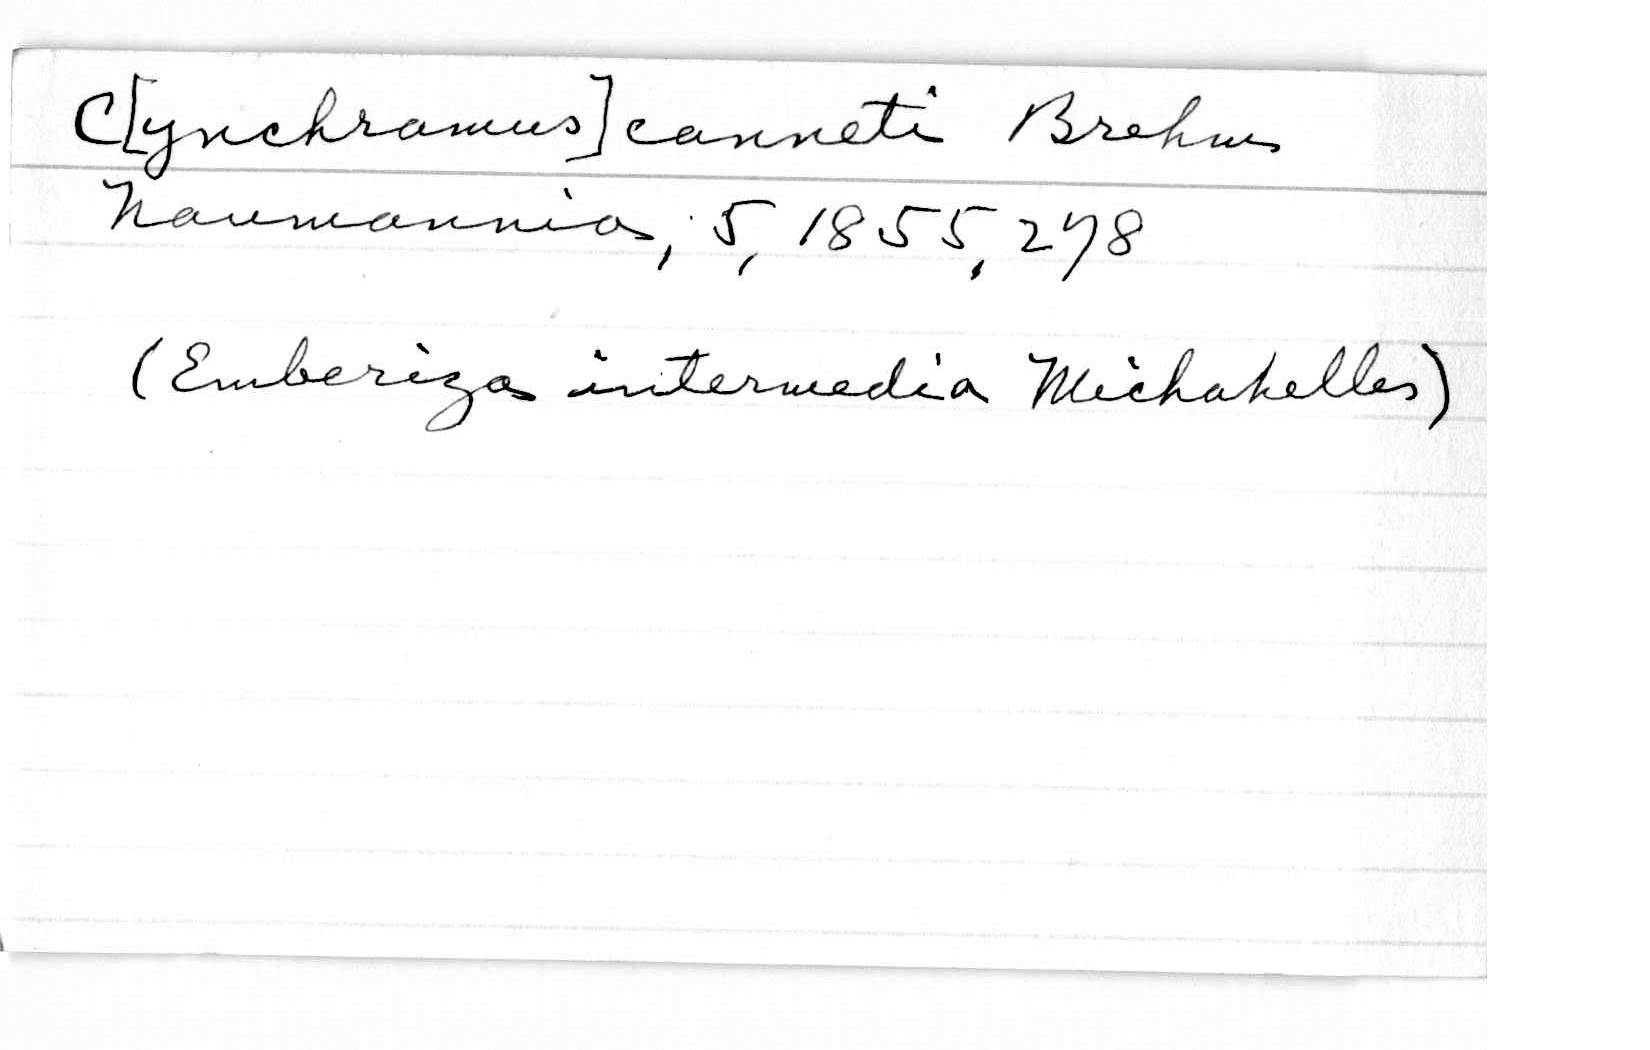 C[ynchramus] canneti Brehm
Naumannia, 5, 1855, 278
(Emberiza intermedia Michahelles)